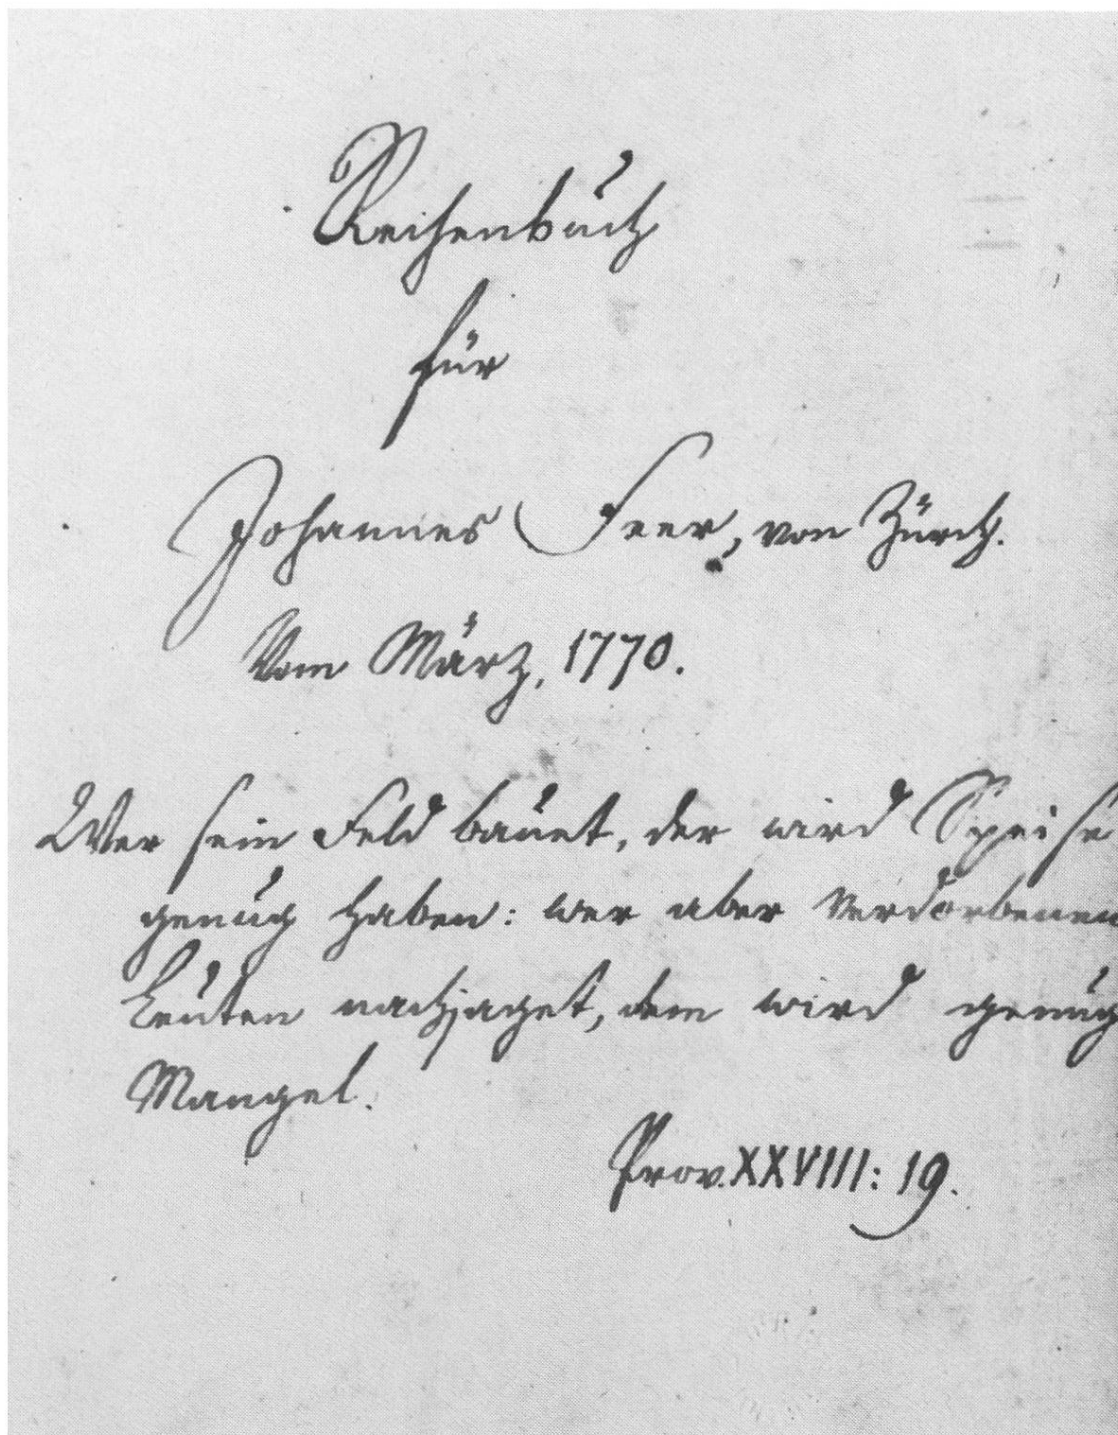 Rechenbuch
für
Johannes Feer, von Zürch.
Vom März, 1770.
Wer sein Feld bauet, der wird Speise
genug haben: wer aber verdorbenen
Leuten nachjaget, dem wird genug
Mangel.
Prov. XXVIII: 19.